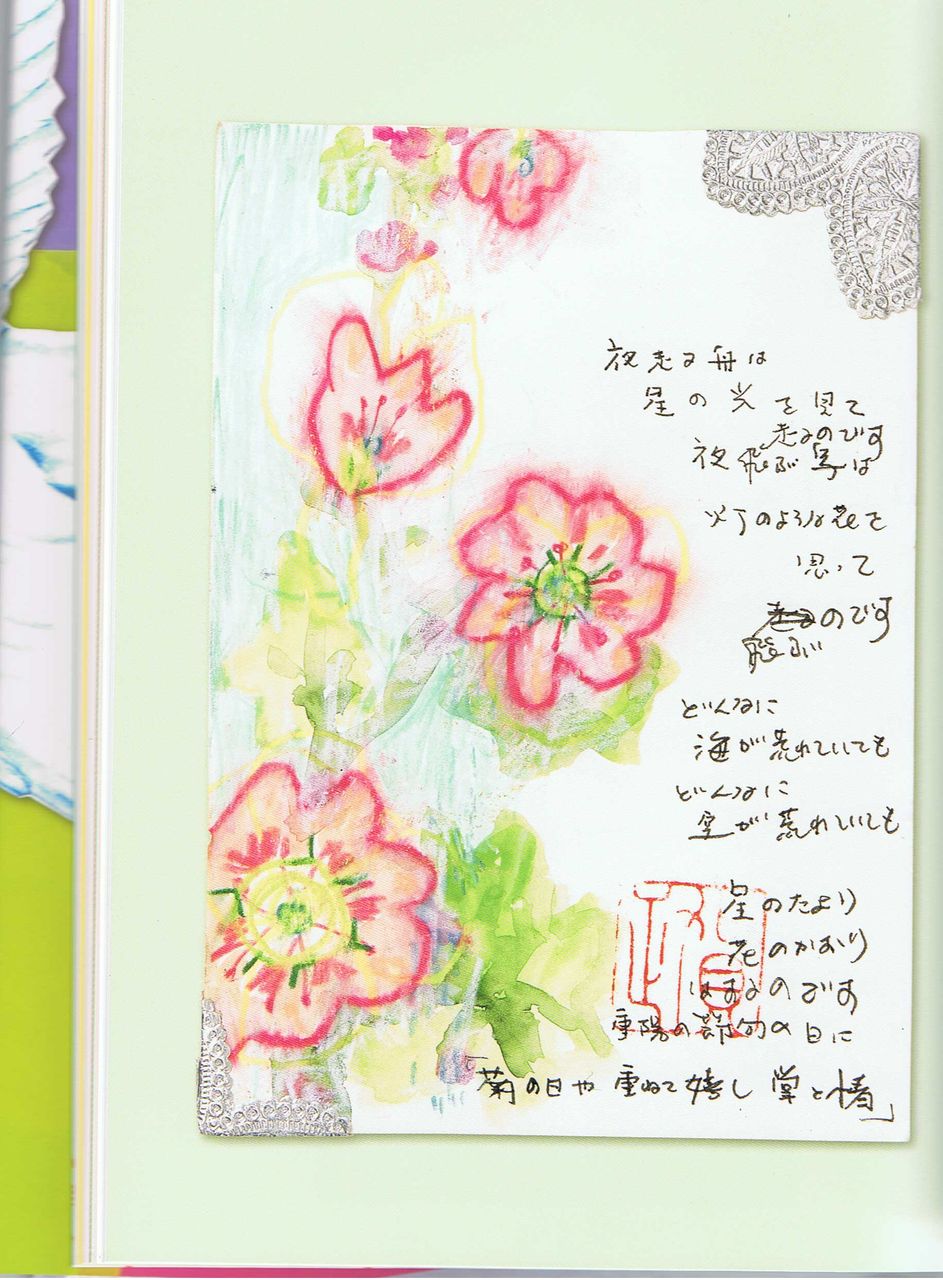 夜走る舟は
星の光を見て
走るのです
夜飛ぶ鳥は
灯のような花を
思って
走るのです
飛ぶ
どんなに
海が荒れていても
どんなに
空が荒れていても
星のたより
花のかおり
はするのです
重陽の節句の日に
「菊の日や重ねて嬉し掌と情」